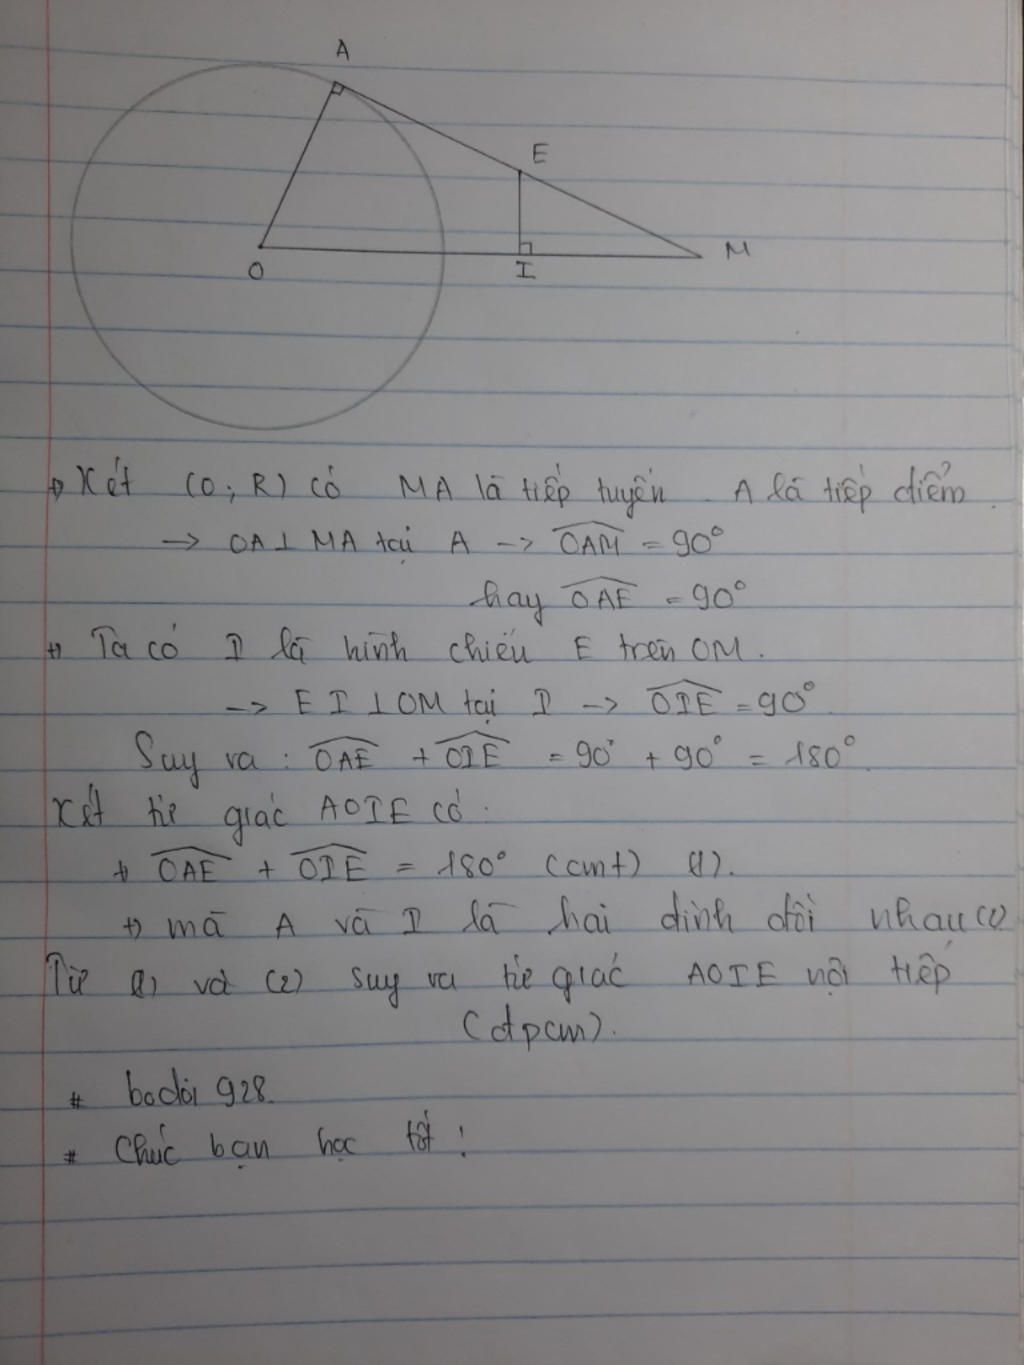 A
E
M
O
I
+) Xét (O; R) có MA là tiếp tuyến A là tiếp điểm.
-> OA⊥MA tại A -> OAM = 90°
hay OAE = 90°
+) Ta có I là hình chiếu E trên OM.
-> EI⊥OM tại I -> OIE = 90°
Suy ra : OAE + OIE = 90° + 90° = 180°.
Xét tứ giác AOIE có :
+) OAE + OIE = 180° (cmt) (1).
+) mà A và I là hai đỉnh đối nhau (2)
Từ (1) và (2) suy ra tứ giác AOIE nội tiếp
(đpcm).
# bodoi 928.
# Chúc bạn học tốt !